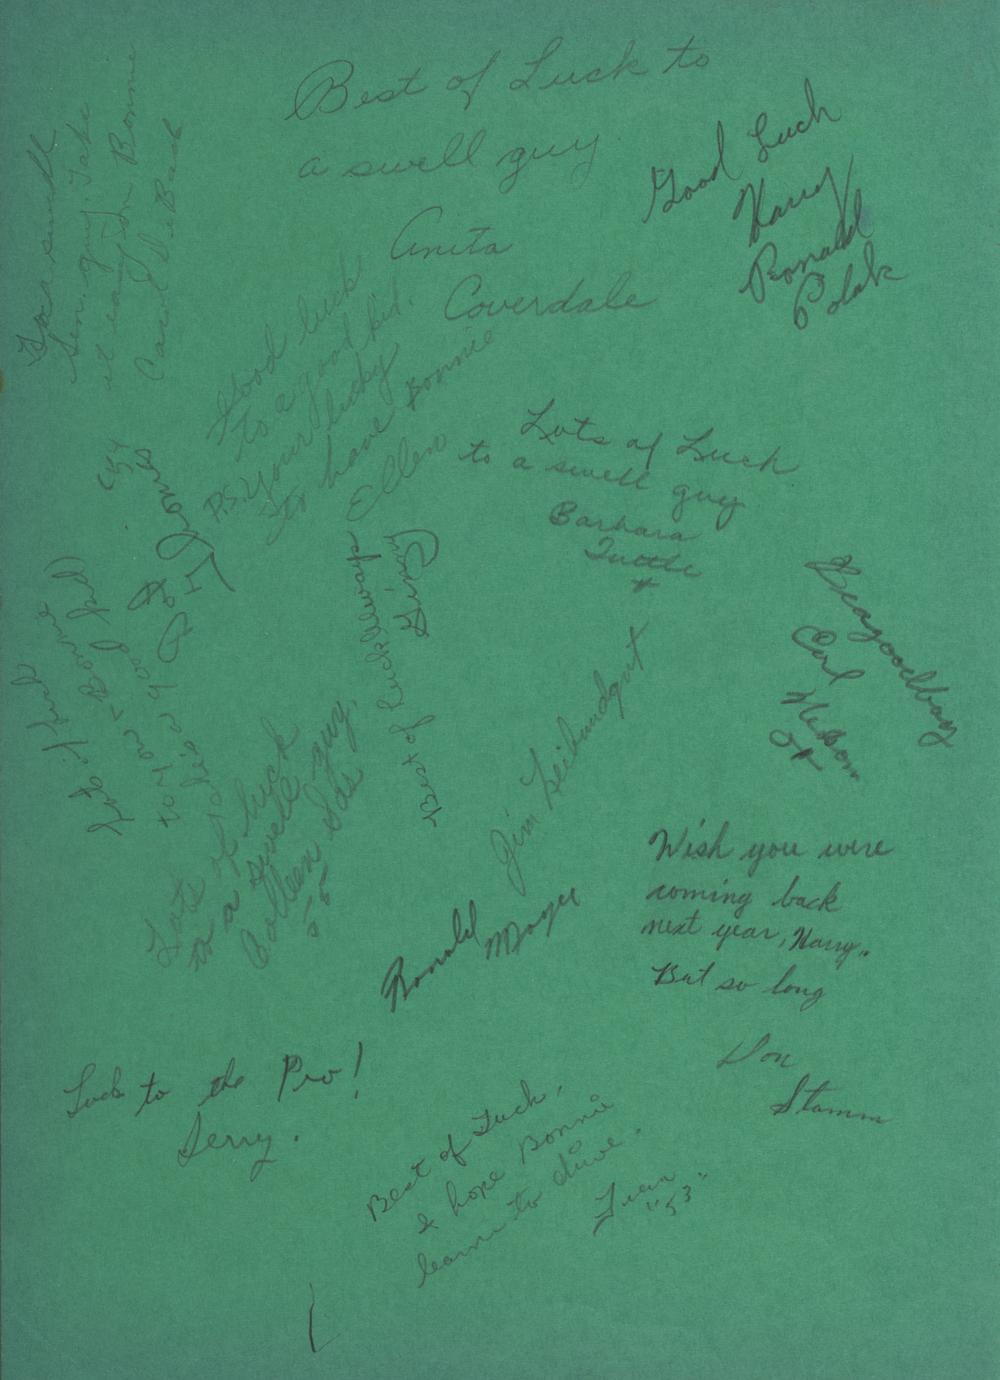 Best of Luck to
a swell guy
Anita
Coverdale
Good Luck
Harry
Ronald
Polak
For a swell
Sen. guy. Take
it easy on Bonnie
Carol
Good luck
to a good kid.
P.S. your lucky
to have Bonnie
Ellen
Lots of Luck
to a swell guy
Barbara
Tuttle
Be a good boy
Carl
Nelson
Lots of luck
to you + Bonnie
(she's a good kid)
Jones
'54
Best of Luck
Ginny
Lots of luck
to a swell guy,
Colleen
55
Jim Leibundgut
Ronald
Moyer
Wish you were
coming back
next year, Harry..
But so long
Don
Stamm
Luck to the Pro!
Jerry.
Best of Luck,
& hope Bonnie
learns to drive.
"53"